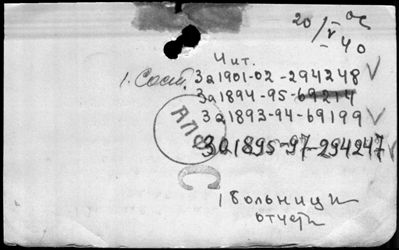 20/V 40
Чит.
1. Сост. За 1901-02-294248 V
За 1894-95-69214
За 1893-94-69199 V
За 1895-97-294247 V
АПО
С
1 Больници
отчет